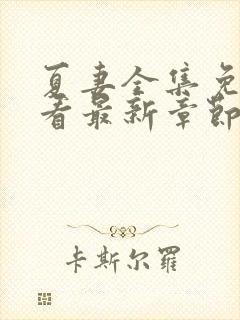 夏妻全集免
看最新章節
卡斯尔羅